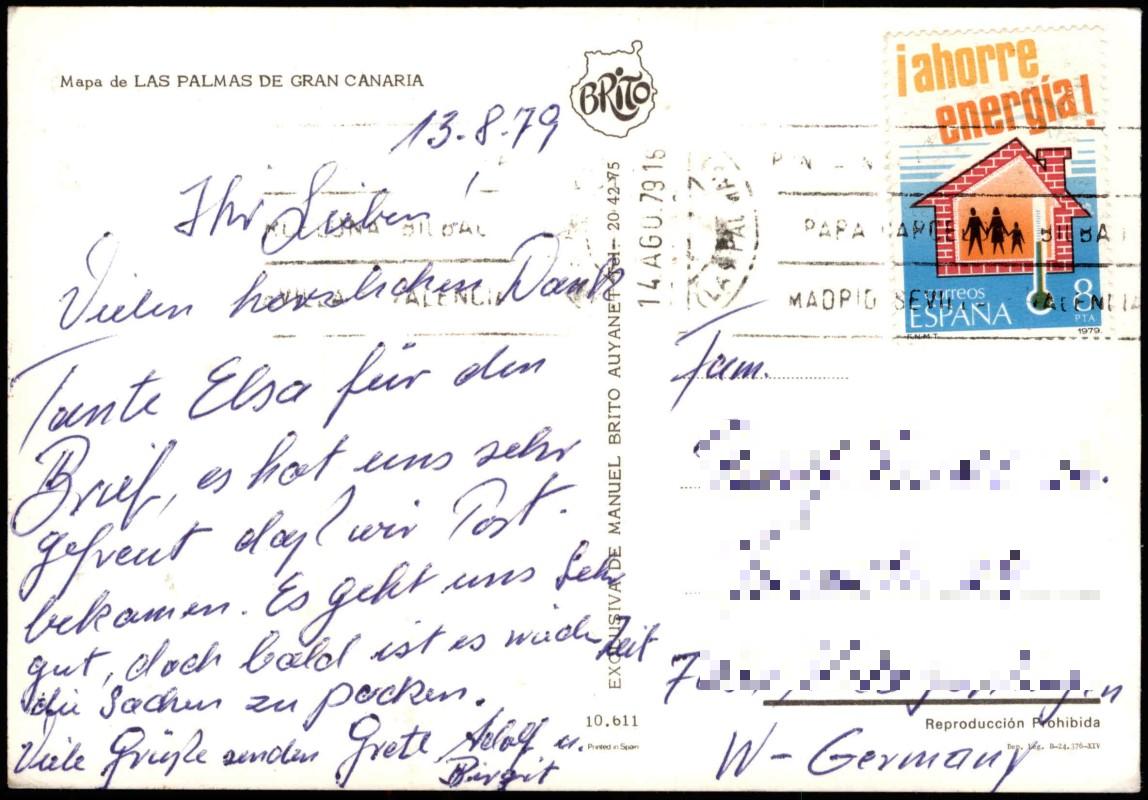 Mapa de LAS PALMAS DE GRAN CANARIA
BRITO
13.8.79
Ihr Lieben!
Vielen herzlichen Dank
Tante Elsa für den
Brief, es hat uns sehr
gefreut daß wir Post.
bekamen. Es geht uns Sehr
gut, doch bald ist es wieder Zeit
die Sachen zu packen.
Viele Grüße senden Grete Adolf u.
Birgit
EXCLUSIVA DE MANUEL BRITO AUYANET Tel- 20 42 75
10.611
Printed in Spain
14 AGO. 79 16
BILBAO
VALENCIA
PAPA
BILBA
MADRID SEVILL
VALENCIA
¡ahorre
energía!
correos
ESPAÑA
8
PTA
F.N.M.T.
1979.
Fam.
W-Germany
Reproducción Prohibida
Dep. Lég. B-24.376-XIV